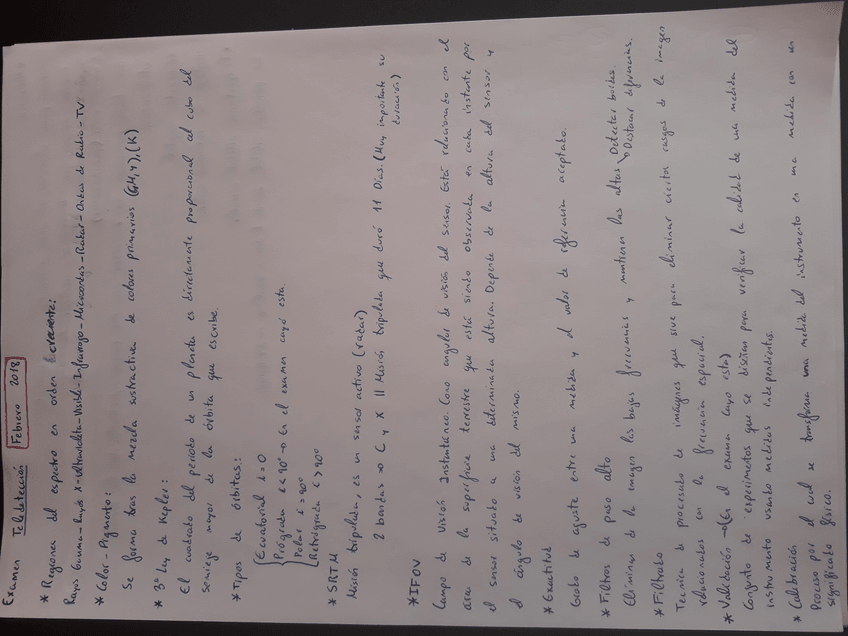 Examen Teledetección Febrero 2018
* Regiones del espectro en orden creciente:
Rayos Gamma - Rayos X - Ultravioleta - Visible - Infrarrojo - Microondas - Radar - Ondas de Radio - TV
* Color - Pigmento:
Se forma tras la mezcla sustractiva de colores primarios (C,M,Y), (K)
* 3ª Ley de Kepler:
El cuadrado del periodo de un planeta es directamente proporcional al cubo del
semieje mayor de la órbita que escribe.
* Tipos de órbitas:
Ecuatorial i = 0
Prógrada i < 90° → En el examen cayó esta.
Polar i = 90°
Retrógrada i > 90°
* SRTM
Misión tripulada, es un sensor activo (radar)
2 bandas → C y X || Misión tripulada que duró 11 Días. (Muy importante su
duración)
* IFOV
Campo de Visión Instantáneo. Cono angular de visión del sensor. Está relacionado con el
área de la superficie terrestre que está siendo observada en cada instante por
el sensor situado a una determinada altura. Depende de la altura del sensor y
el ángulo de visión del mismo.
* Exactitud
Grado de ajuste entre una medida y el valor de referencia aceptado.
* Filtros de paso alto
Eliminar de la imagen las bajas frecuencias y mantienen las altas Detectar bordes.
→ Destacar diferencias.
* Filtrado
Técnica de procesado de imágenes que sirve para eliminar ciertos rasgos de la imagen
relacionados en la frecuencia espacial.
* Validación → (En el examen cayó esta)
Conjunto de experimentos que se diseñan para verificar la calidad de una medida del
instrumento usando medidas independientes.
* Calibración
Proceso por el cual se transforma una medida del instrumento en una medida con un
significado físico.